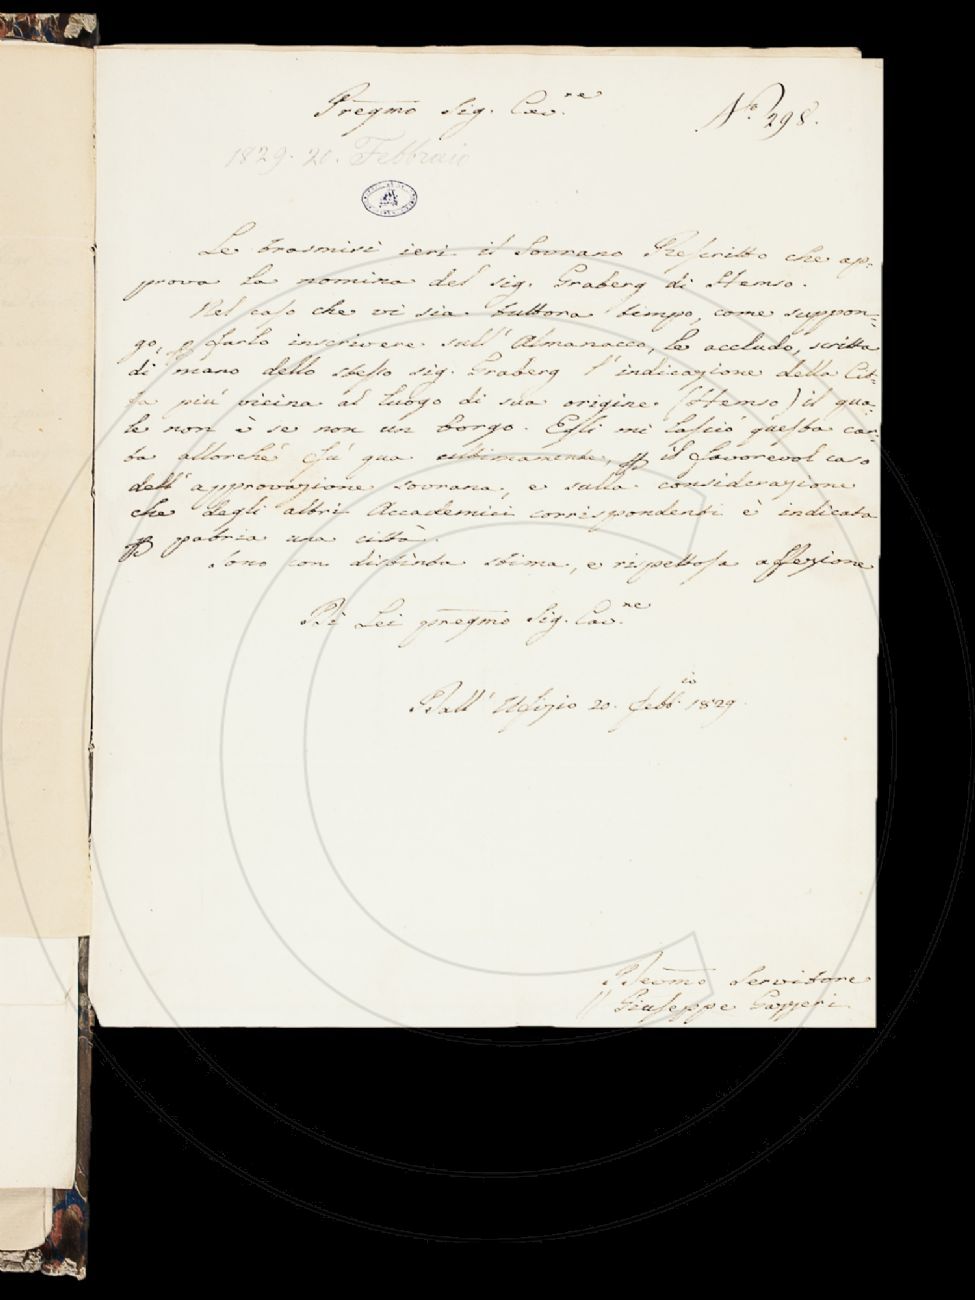 Pregmo Sig. Cav.re
N.o 298.
1829. 20. Febbraio
Le trasmisi ieri il Sovrano Rescritto che ap-
prova la nomina del sig. Graberg di Hemso.
Nel caso che vi sia tuttora tempo, come suppon-
go, farlo inscrivere sull' Almanacco, le accludo, scritta
di mano dello stesso sig. Graberg l' indicazione della Cit-
tà più vicina al luogo di sua origine (Hemso) il qua-
le non è se non un borgo. Egli mi lasciò questa car-
ta allorchè fù qua ultimamente, p il favorevol caso
dell' approvazione sovrana, e sulla considerazione
che degli altri Accademici corrispondenti è indicata
p patria una città.
Sono con distinta stima, e rispettosa affezione
Di Lei pregmo Sig. Cav.re
Dall' Ufizio 20. Febb.io 1829.
Servitore
Giuseppe Gazzeri